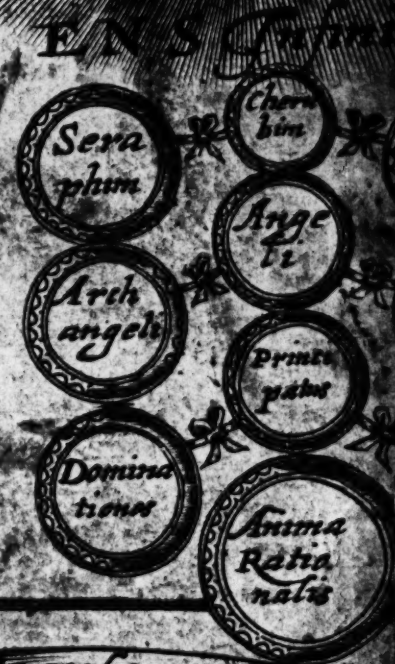 ENS Infini
Sera
phim
Cheru
bim
Ange
li
Arch
angeli
Princi
patus
Domina
tiones
Anima
Ratio
nalis